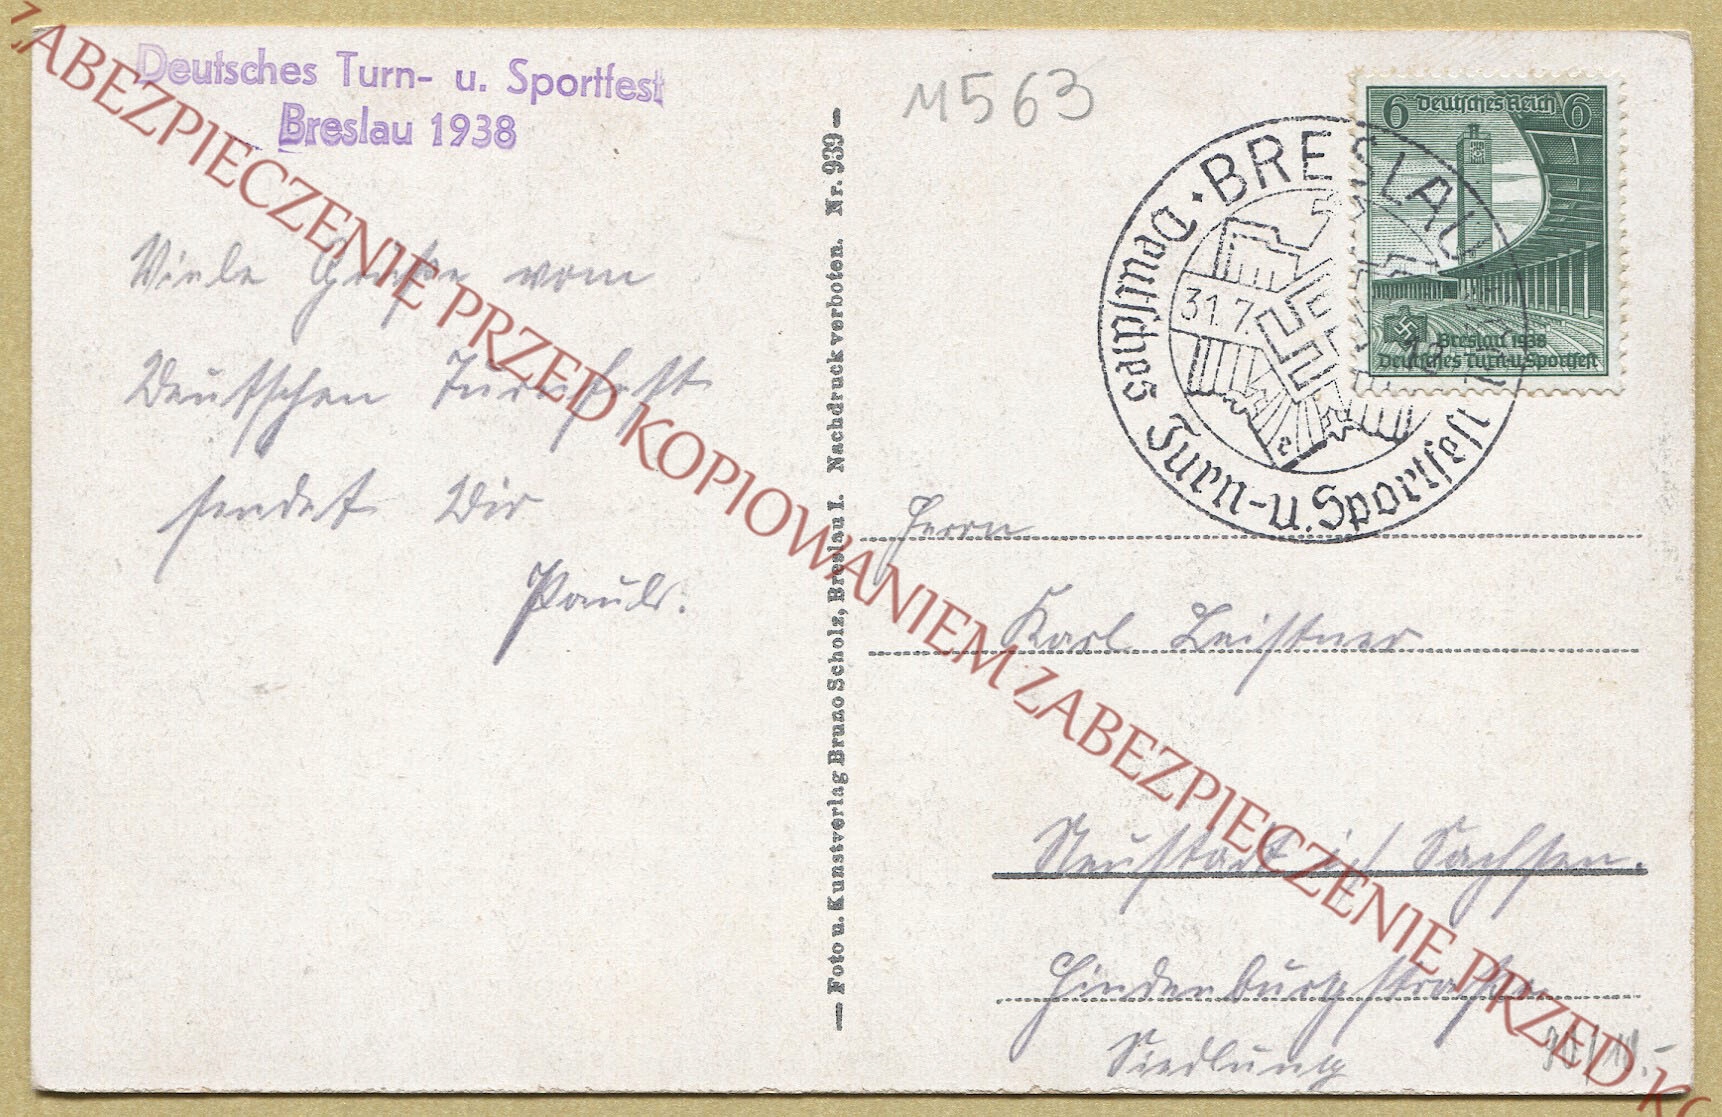 Deutsches Turn- u. Sportfest
Breslau 1938
Viele Grüße vom
Deutschen Turnfest
sendet Dir
Paul.
— Foto u. Kunstverlag Bruno Scholz, Breslau I. Nachdruck verboten. Nr. 939 —
11563
BRESLAU
31.7.
Deutsches Turn-u. Sportfest
e
6 Deutsches Reich 6
Breslau 1938
Deutsches Turn-u. Sportfest
Herrn
Karl Leistner
Neustadt i/ Sachsen.
Hindenburgstraße
Siedlung
ZABEZPIECZENIE PRZED KOPIOWANIEM ZABEZPIECZENIE PRZED KO